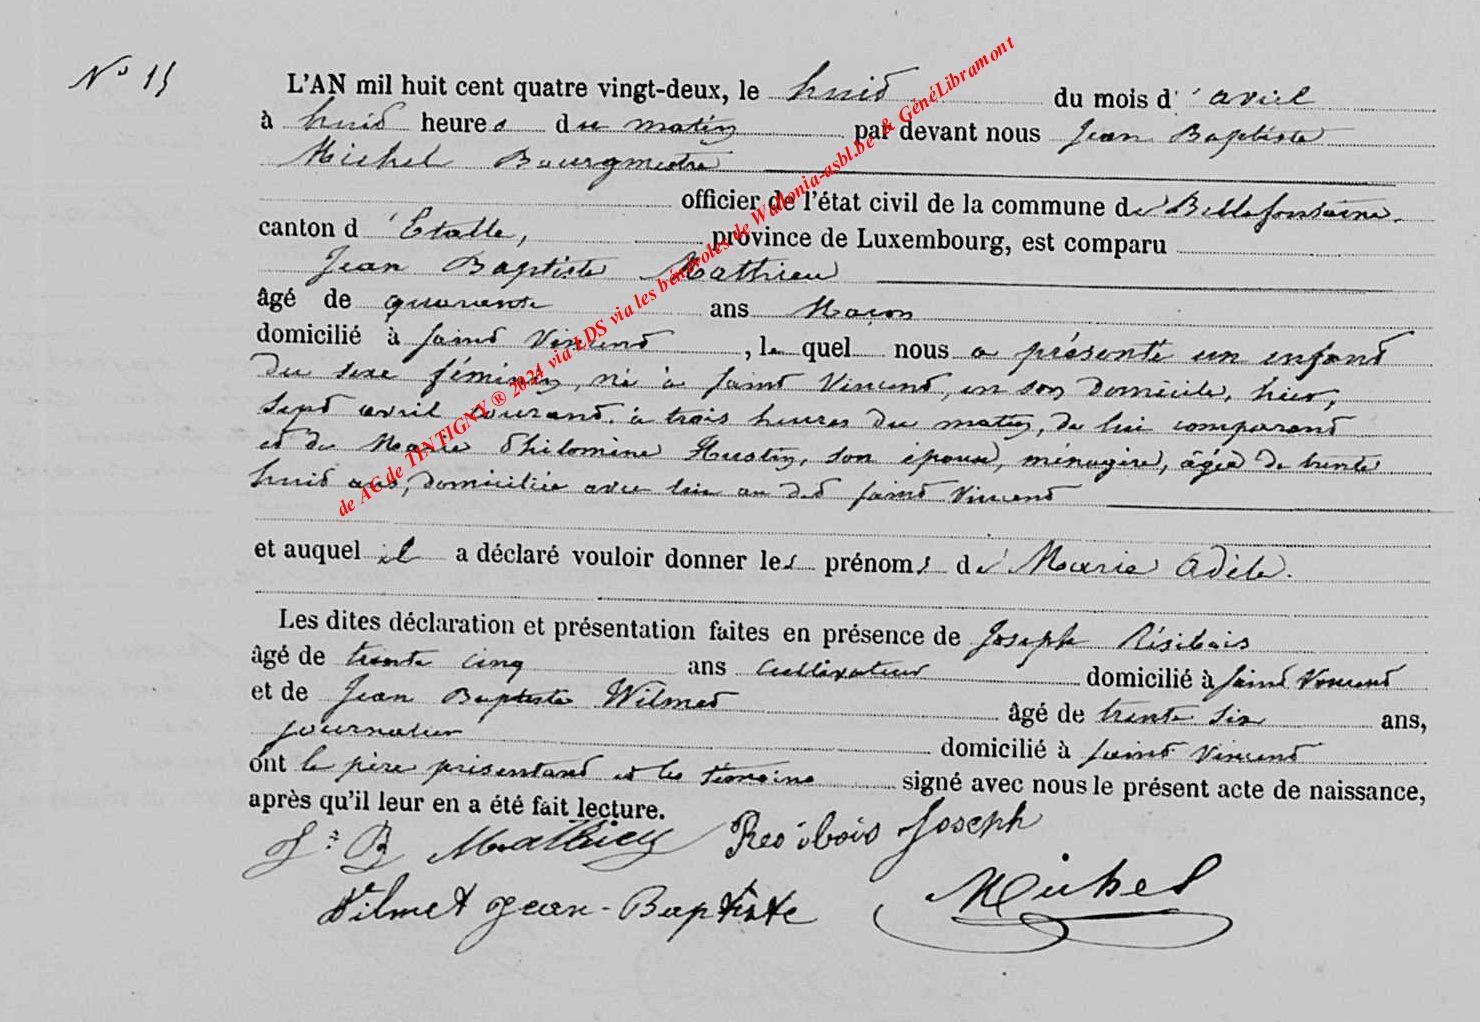 N° 15
L'AN mil huit cent quatre vingt-deux, le huit du mois d'avril
à huit heures du matin par devant nous Jean Baptiste
Michel Bourgmestre
officier de l'état civil de la commune de Bellefontaine
canton d'Etalle, province de Luxembourg, est comparu
Jean Baptiste Mathieu
âgé de quarante ans Maçon
domicilié à Saint Vincent, lequel nous a présenté un enfant
du sexe féminin, né à Saint Vincent, en son domicile, hier,
sept avril courant, à trois heures du matin, de lui comparant
et de Marie Philomène Hustin, son épouse, ménagère, âgée de trente
huit ans, domiciliée avec lui au dit Saint Vincent
et auquel il a déclaré vouloir donner les prénoms de Marie Adèle.
Les dites déclaration et présentation faites en présence de Joseph Résibois
âgé de trente cinq ans cultivateur domicilié à Saint Vincent
et de Jean Baptiste Wilmet âgé de trente six ans,
journalier domicilié à Saint Vincent
ont le père présentant et les témoins signé avec nous le présent acte de naissance,
après qu'il leur en a été fait lecture.
J: B Mathieu Résibois Joseph
Wilmet Jean-Baptiste Michel
de AG de TINTIGNY ® 2024 via LDS via les bénévoles de Wallonia-asbl.be & GénéLibramont